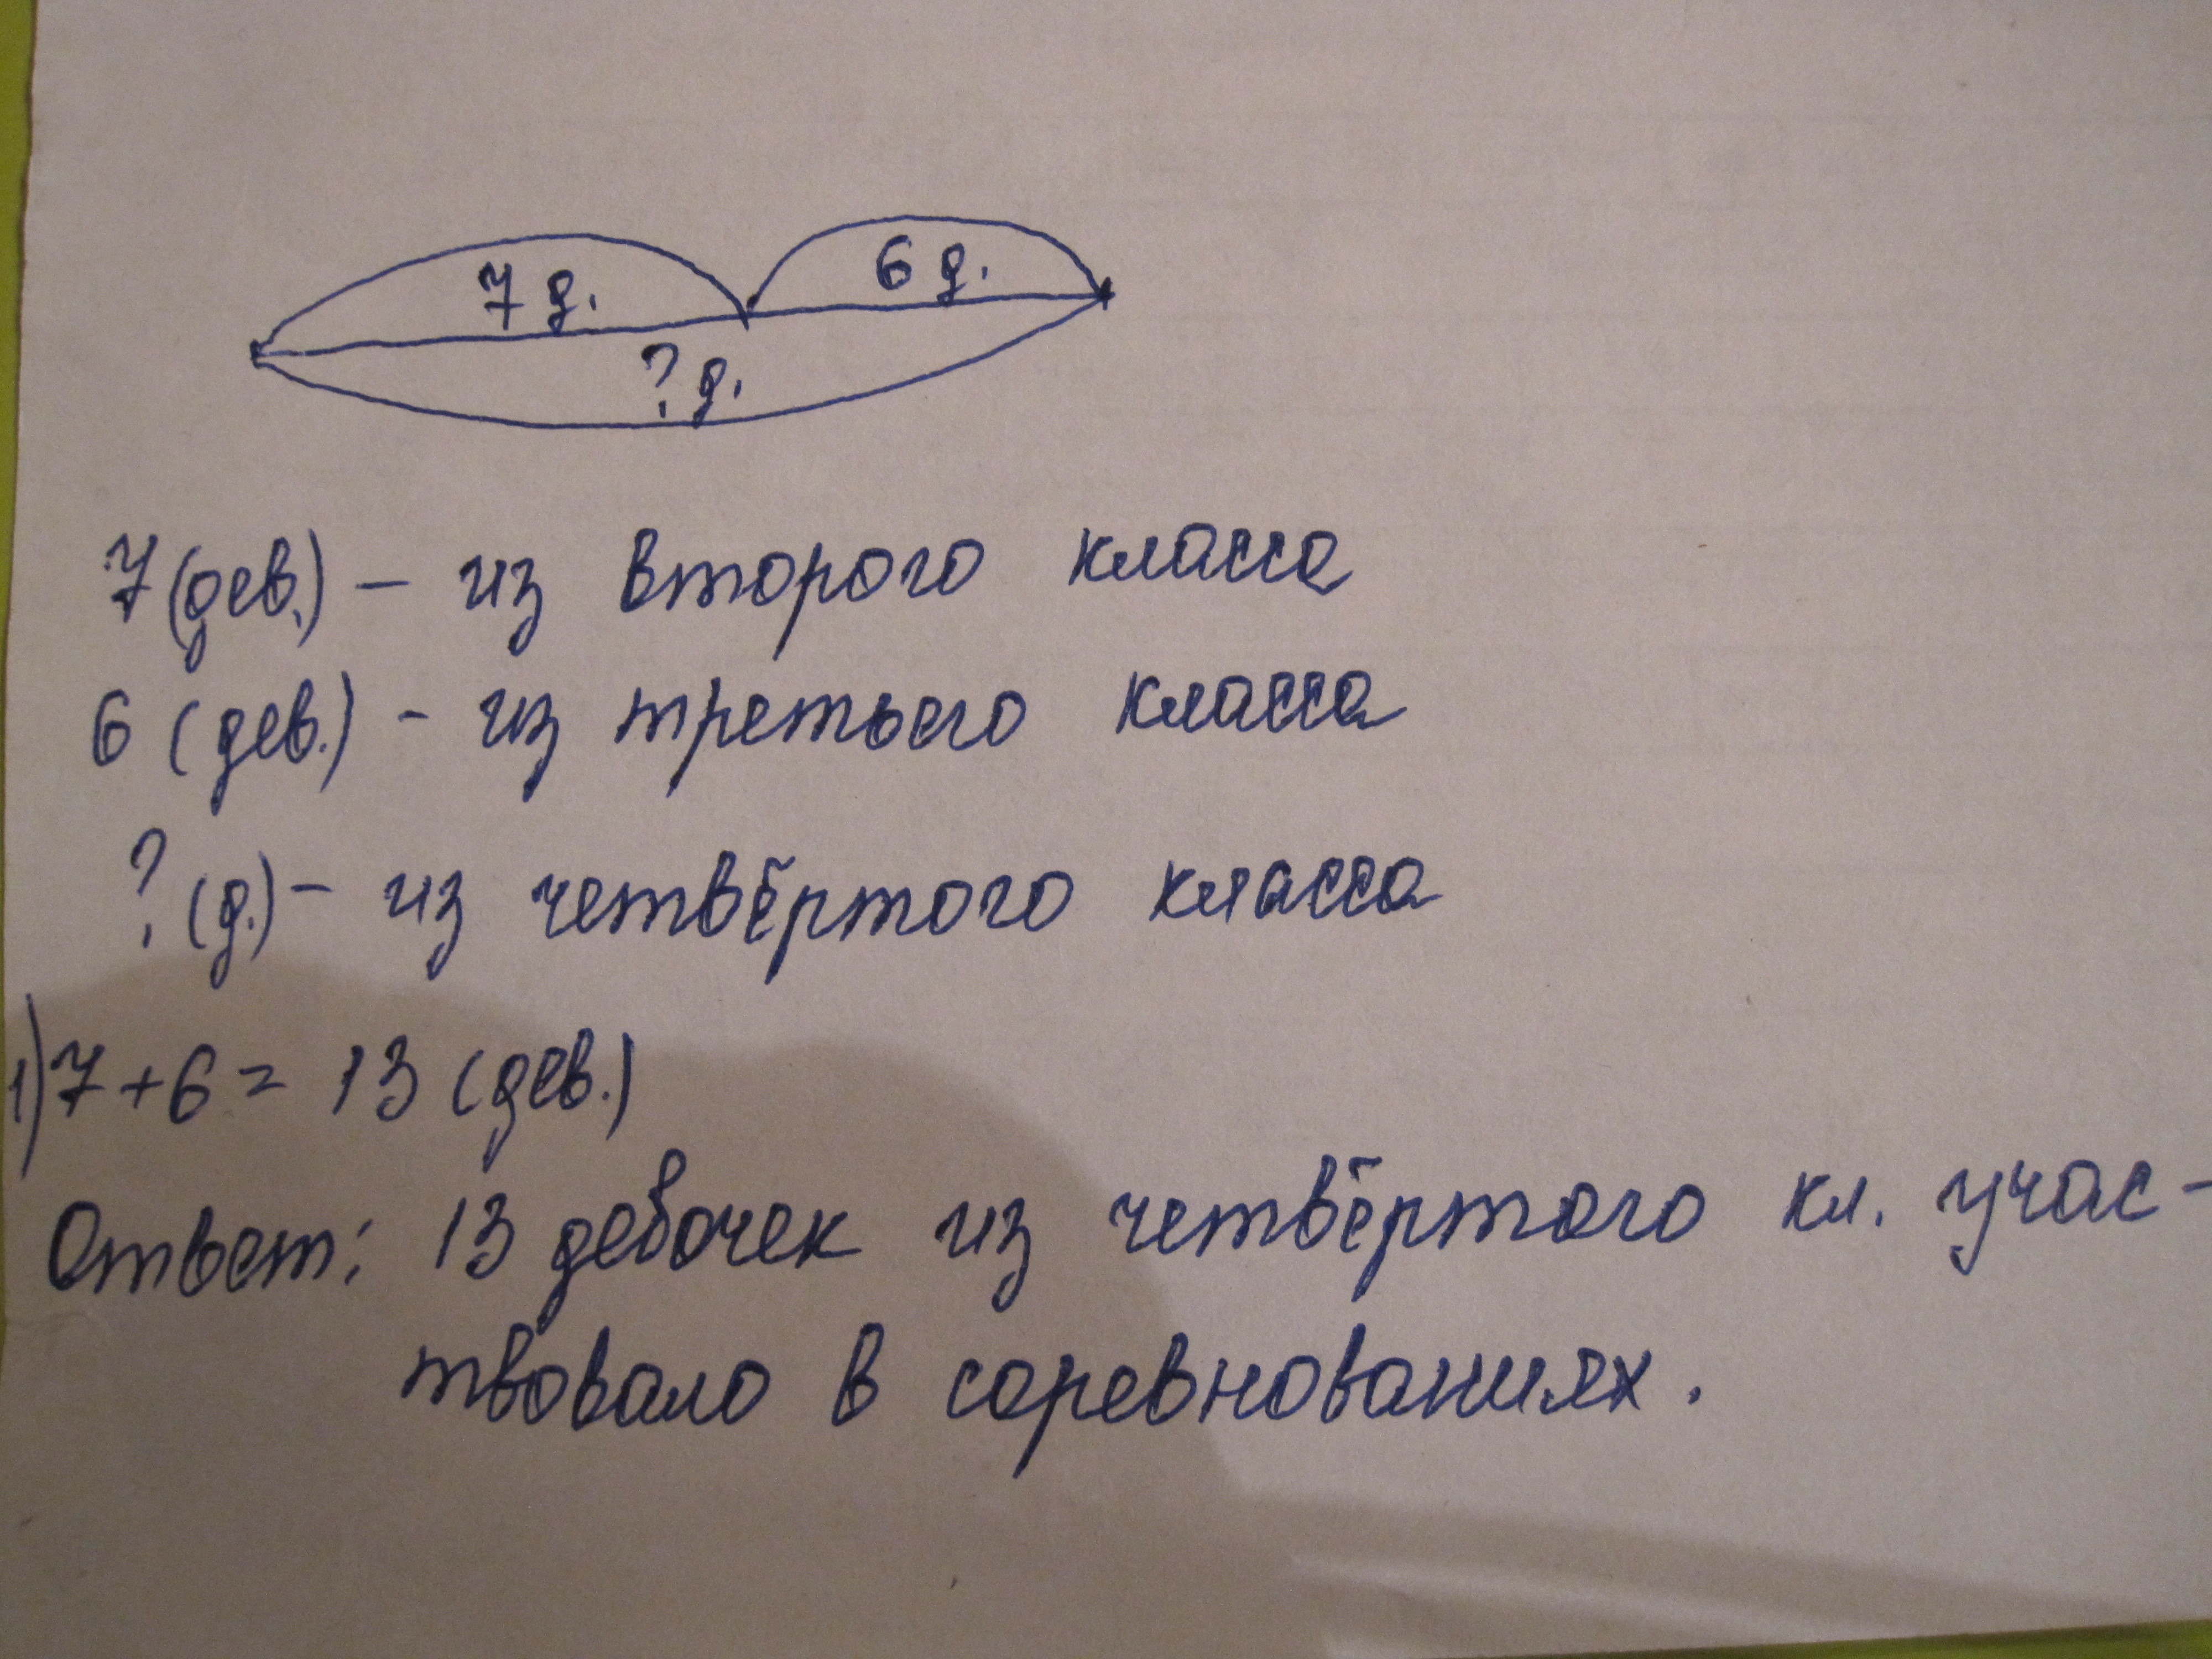 7 д. 6 д.
? д.
7 (дев.) – из второго класса
6 (дев.) - из третьего класса
? (д.) – из четвёртого класса
1) 7 + 6 = 13 (дев.)
Ответ: 13 девочек из четвёртого кл. учас-
твовало в соревнованиях.